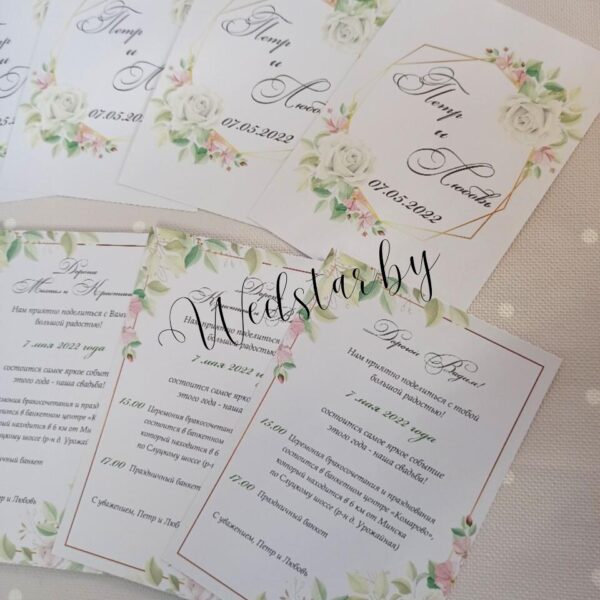 Петр
и
Петр
и
Любовь
07.05.2022
Петр
и
Любовь
07.05.2022
Петр
и
Любовь
07.05.2022
Wedstarby
Дорогие
Нам приятно поделиться с Вам
большой радостью!
7 мая 2022 года
состоится самое яркое событ
этого года - наша свадьба!
Церемония бракосочетания и празд
состоится в банкетном центре «К
который находится в 6 км от Мин
по Слуцкому шоссе (р-н д. Урожай
Праздничный банкет
С уважением, Петр и Любовь
Нам приятно
большой радостью!
7 мая 2022
состоится самое
этого года - наша
15.00 Церемония бракосочетания
состоится в банкетном
который находится в 6
по Слуцкому шоссе (р-н
17.00 Праздничный банкет
С уважением, Петр и Любовь
Дорогой Вадим!
Нам приятно поделиться с тобой
большой радостью!
7 мая 2022 года
состоится самое яркое событие
этого года - наша свадьба!
15.00 Церемония бракосочетания и празднования
состоится в банкетном центре «Комарово»,
который находится в 6 км от Минска
по Слуцкому шоссе (р-н д. Урожайная)
17.00 Праздничный банкет
С уважением, Петр и Любовь